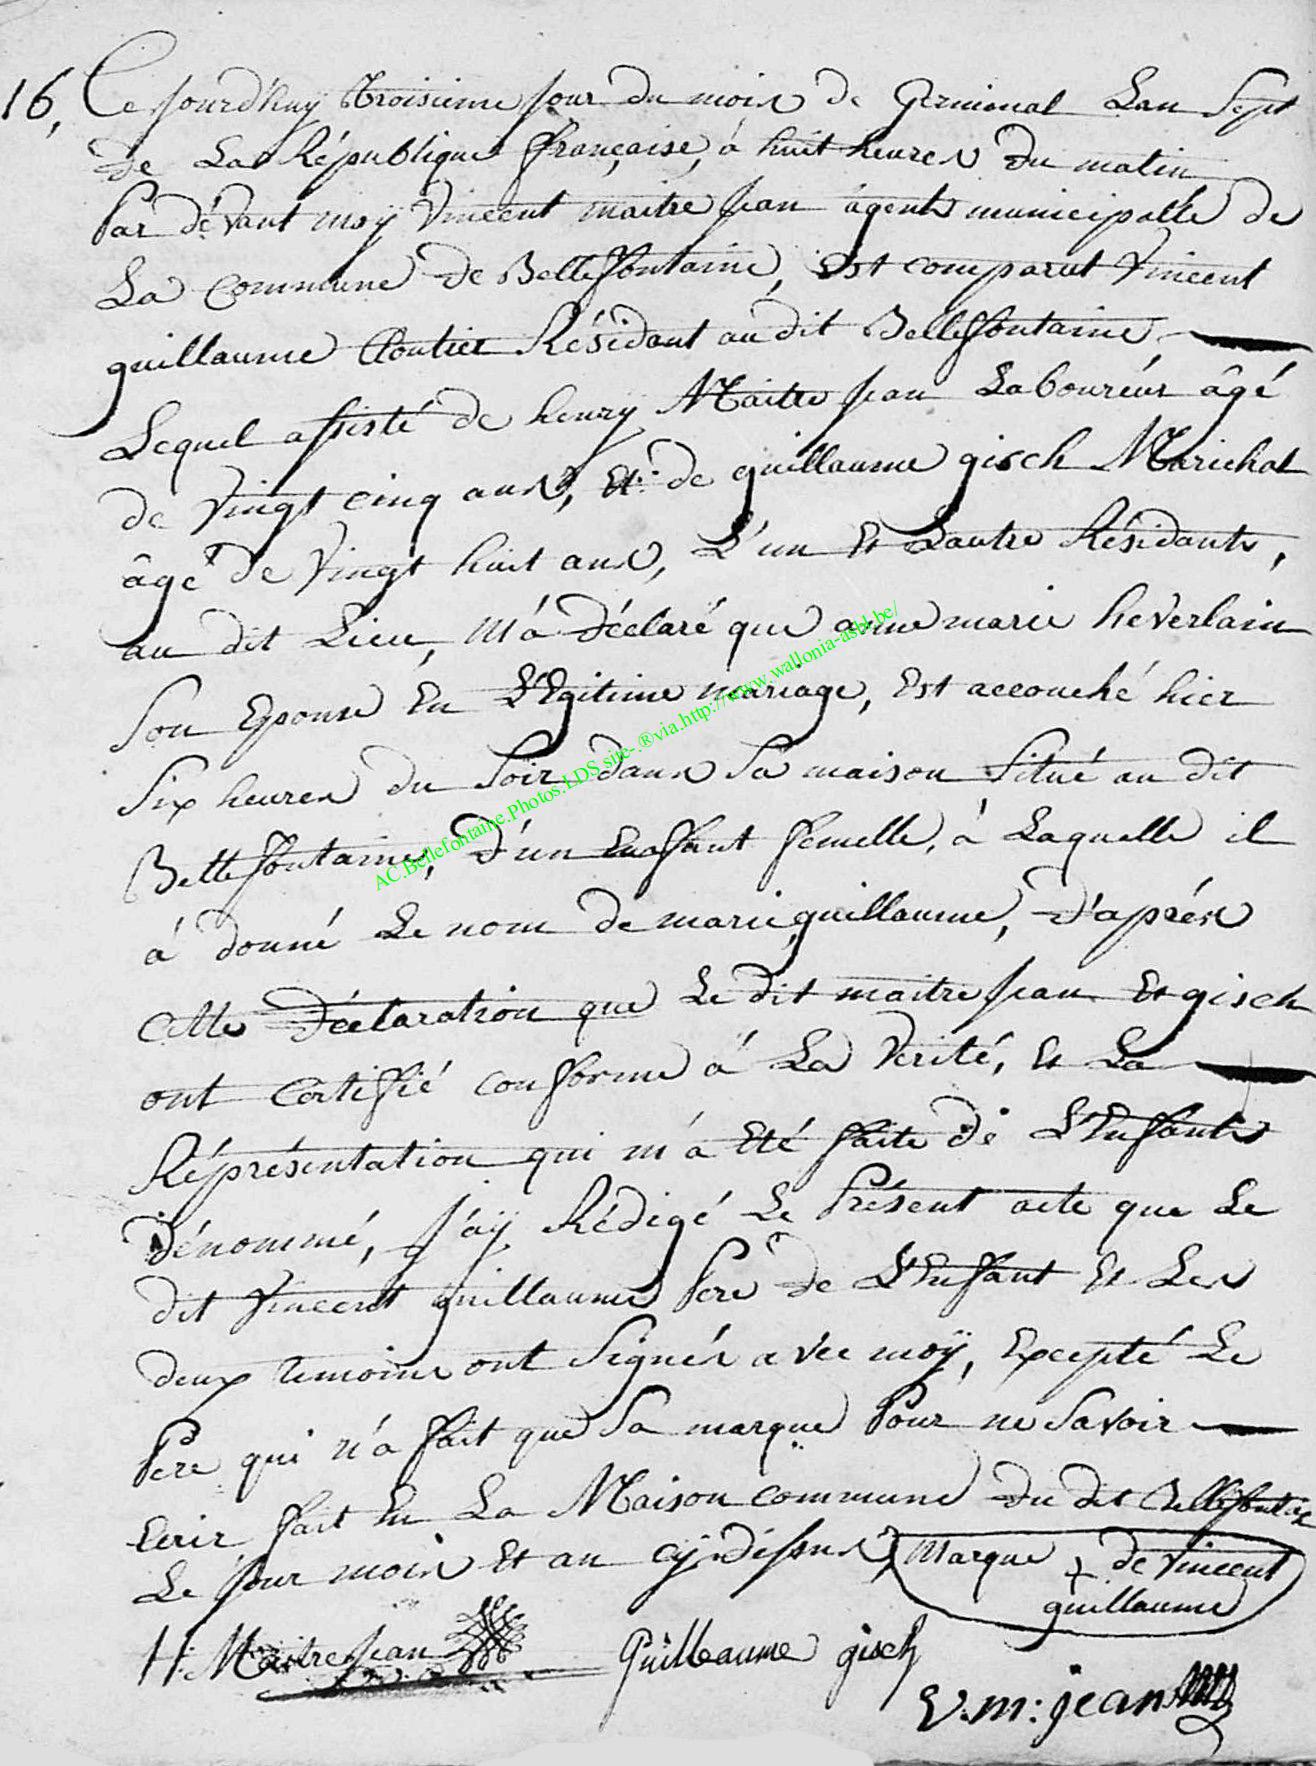 16, Ce jourd'huy troisieme jour du mois de Germinal Lan Sept
de La République française, à huit heures du matin
Par dévant moÿ Vincent maitrejean ágent municipalle de
La Commune de Bellefontaine, Est comparut Vincent
guillaume Cloutier Résidant audit Bellefontaine
Lequel assisté de henry Maitrejean Laboureur âgé
de Vingt cinq ans, Et de guillaume gisch Marichal
âgé de Vingt huit ans, L'un Et Lautre Résidants,
au dit Lieu, M'a déclaré que anne marie heverlain
Son Epouse En L'Egitime mariage, Est accouché hier
Six heures du Soir dans Sa maison Situé au dit
Bellefontaine, D'un Enfant femelle, à Laquelle il
à donné Le nom de marie guillaume, D'aprés
Cette Déclaration que Le dit maitrejean Et gisch
ont Certifié conforme à La Verité, Et La
Réprésentation qui m'a Eté faite de L'Enfant
Dénommé, J'aÿ Rédigé Le Présent acte que Le
dit Vincent guillaume Pere de L'Enfant Et Les
deux temoins ont Signés avec moÿ, Excepté Le
Pere qui n'a fait que Sa marque Pour ne Savoir
Ecrir fait En La Maison commune Du dit Bellefontaine
Le jour mois Et an cÿ dessus Marque + de Vincent
guillaume
H: Maitrejean Guillaume gisch
V. m: jean
AC.Bellefontaine.Photos.LDS site-.®via.http://www.wallonia-asbl.be/